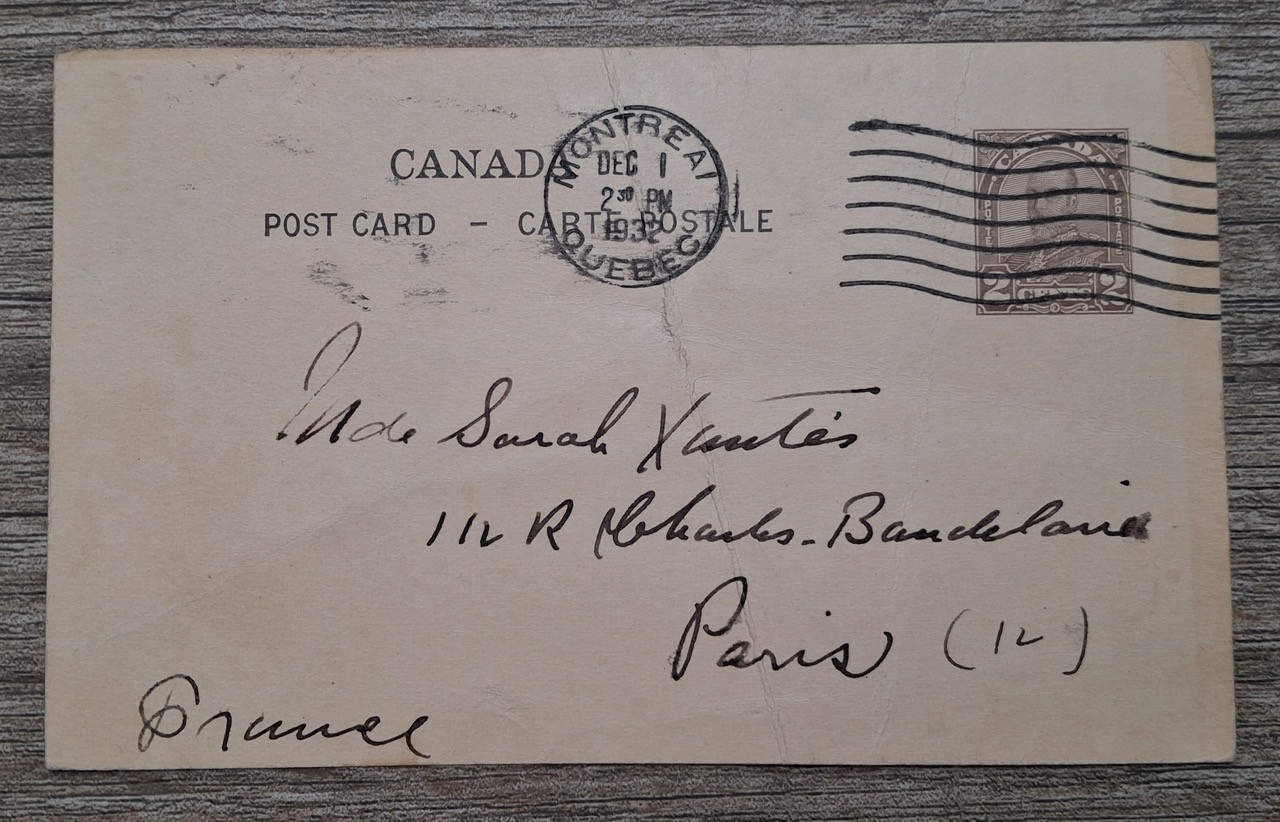 CANADA
POST CARD – CARTE POSTALE
MONTREAL
DEC 1
2³⁰ PM
1932
QUEBEC
CANADA
POSTES POSTAGE
2 CENTS 2
Mde Sarah Xantès
112 R Charles-Baudelaire
Paris (12)
France